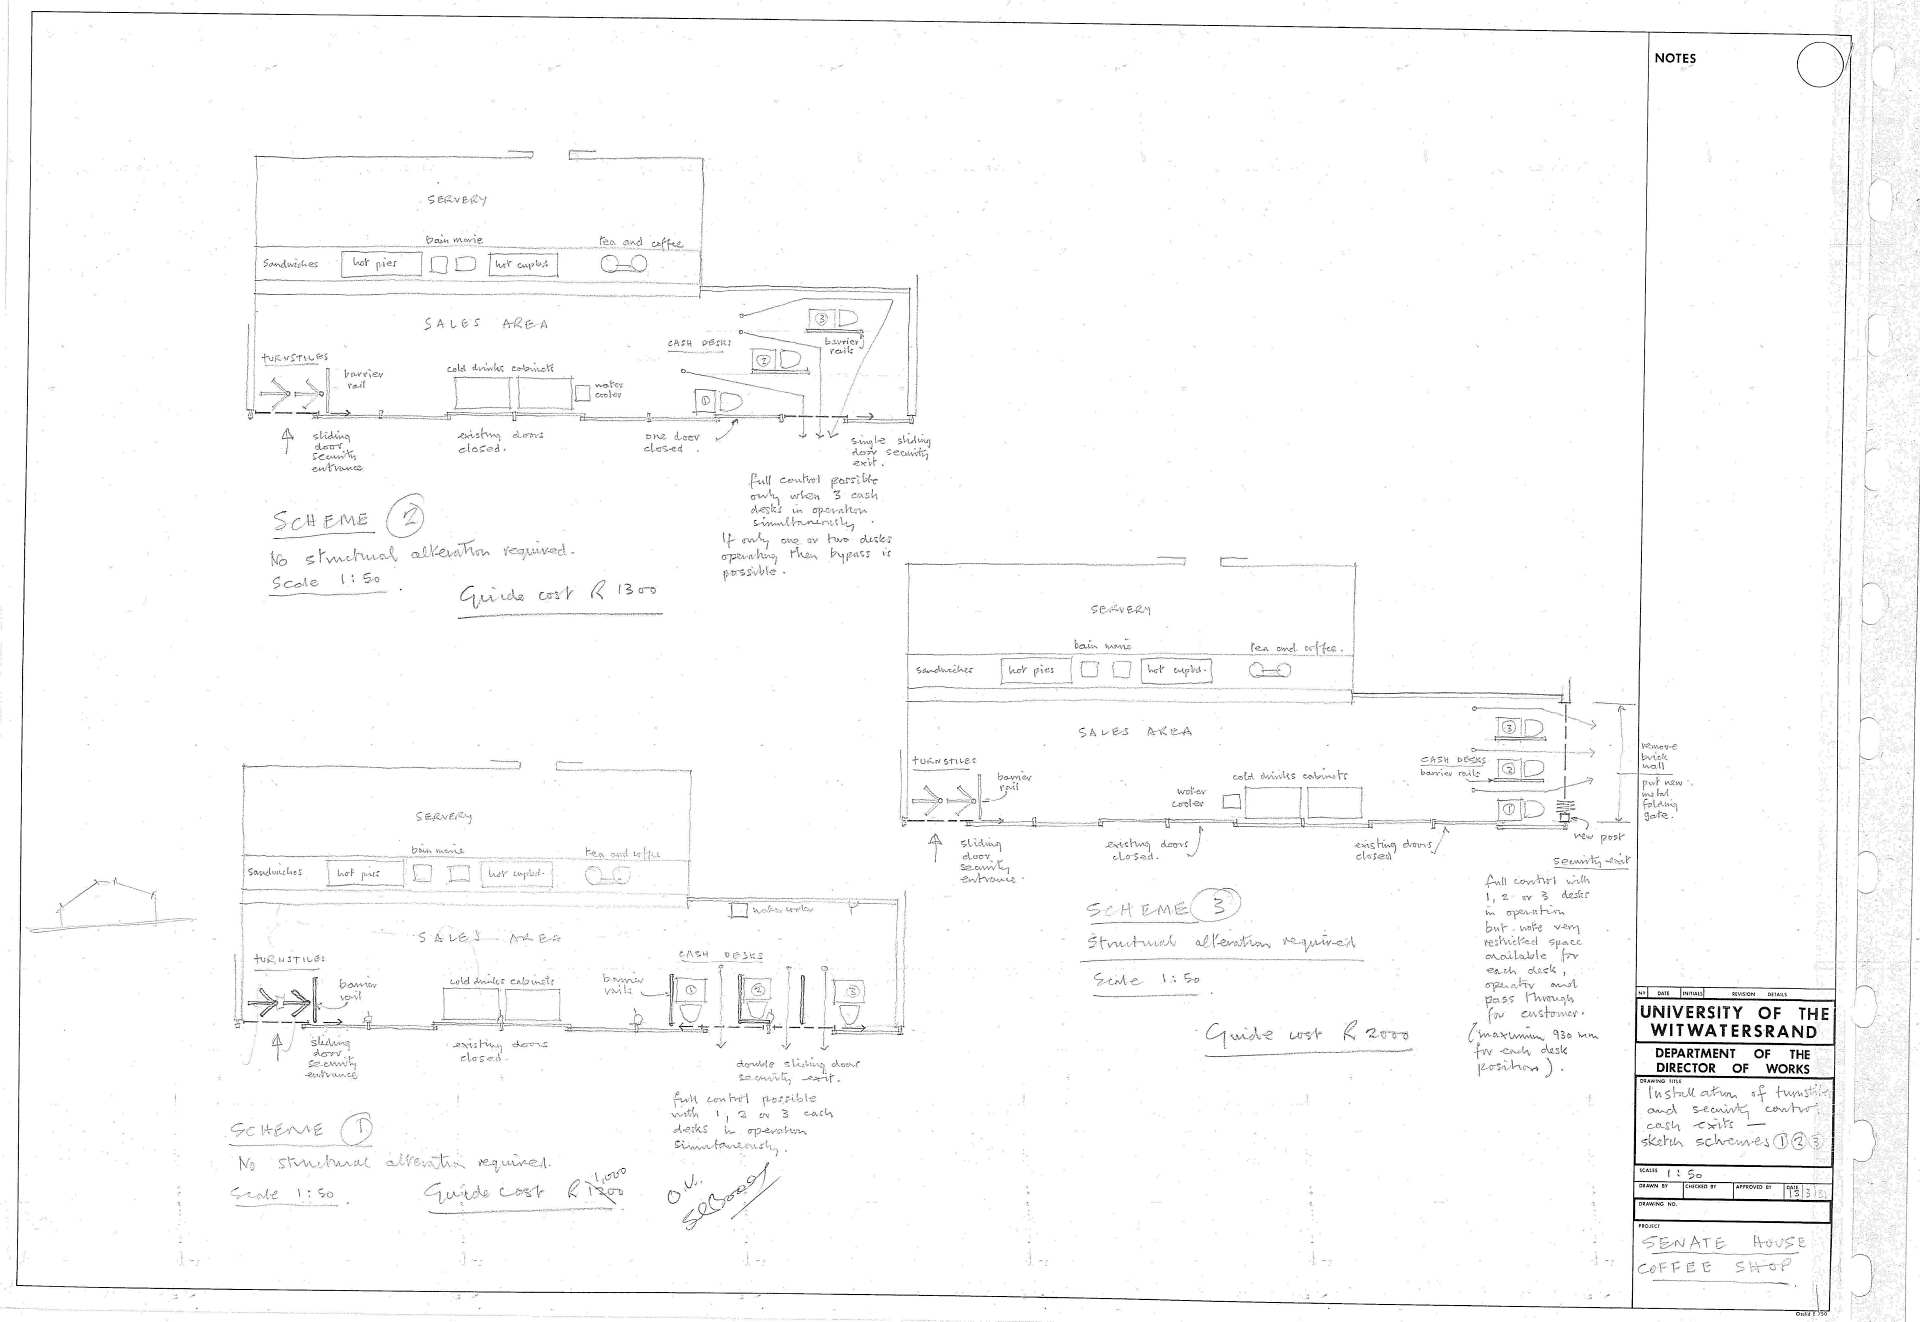 NOTES
SERVERY
bain marie
tea and coffee
Sandwiches
hot pies
hot cupbd.
SALES AREA
TURNSTILES
barrier
rail
cold drinks cabinets
water
cooler
CASH DESKS
③
②
①
barrier
rails
sliding
door
security
entrance
existing doors
closed.
one door
closed.
single sliding
door security
exit.
full control possible
only when 3 cash
desks in operation
simultaneously.
If only one or two desks
operating then bypass is
possible.
SCHEME ②
No structural alteration required.
Scale 1:50.
Guide cost R 1300
SERVERY
bain marie
tea and coffee.
Sandwiches
hot pies
hot cupbd.
SALES AREA
TURNSTILES
barrier
rail
water
cooler
cold drinks cabinets
CASH DESKS
barrier rails
③
②
①
remove
brick
wall
put new
metal
folding
gate.
new post
sliding
door
security
entrance.
existing doors
closed.
existing doors
closed
security exit
full control with
1, 2 or 3 desks
in operation
but note very
restricted space
available for
each desk,
operator and
pass through
for customer.
(maximum 930 mm
for each desk
position).
SCHEME ③
Structural alteration required
Scale 1:50.
Guide cost R 2000
SERVERY
bain marie
tea and coffee
Sandwiches
hot pies
hot cupbd.
water cooler
SALES AREA
TURNSTILES
barrier
rail
cold drinks cabinets
barrier
rails
CASH DESKS
①
②
③
sliding
door
security
entrance
existing doors
closed.
double sliding door
security exit.
full control possible
with 1, 2 or 3 cash
desks in operation
simultaneously.
SCHEME ①
No structural alteration required.
1,000
Scale 1:50.
Guide cost R 1300
NO DATE INITIALS REVISION DETAILS
UNIVERSITY OF THE
WITWATERSRAND
DEPARTMENT OF THE
DIRECTOR OF WORKS
DRAWING TITLE
Installation of turnstile
and security control
cash exits —
sketch schemes ① ② ③
SCALES 1:50
DRAWN BY CHECKED BY APPROVED BY DATE
DRAWING NO.
PROJECT
SENATE HOUSE
COFFEE SHOP.